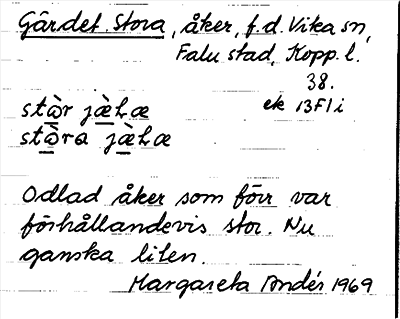 Gärdet. Stora, åker, f.d. Vika sn,
Falu stad, Kopp. l.
38.
ek 13F1i
stɑ̀r jæ̀Łæ
stɑ̀ra jæ̀Łæ
Odlad åker som förr var
förhållandevis stor. Nu
ganska liten.
Margareta Andér 1969